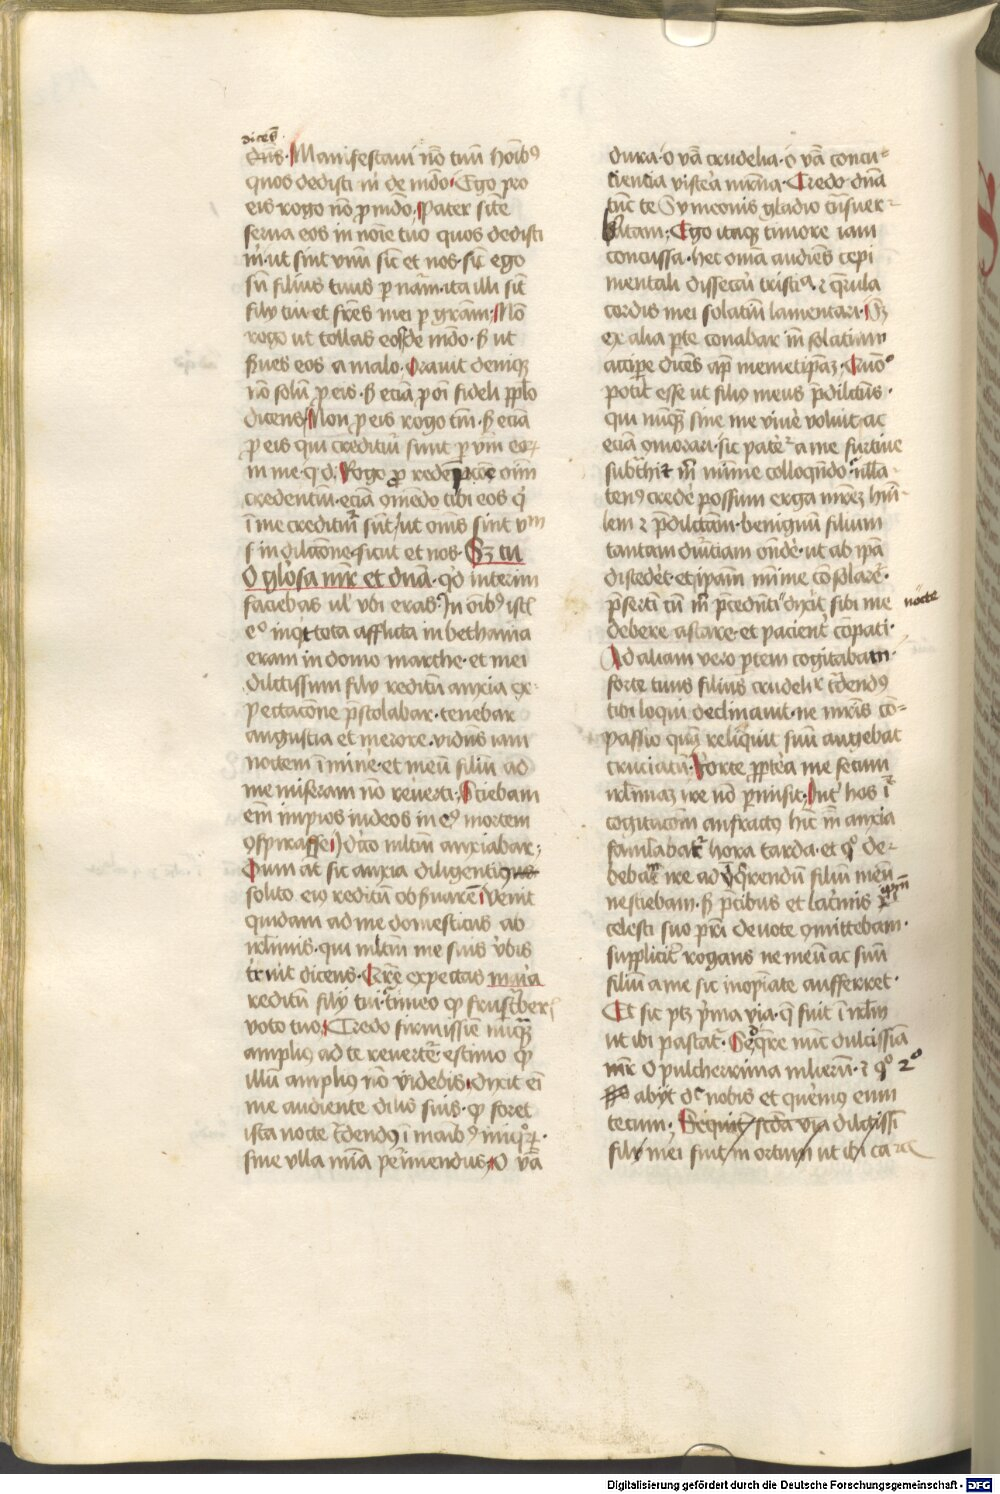 dicēs
dn̄s. Manifestaui nō tuū hoīb9
quos dedisti m̄ de mūdo. Ego pro
eis rogo nō ꝓ mūdo, Pater sc̄te
serua eos in noīe tuo quos dedisti
m̄. ut sint vnū sic̄ et nos. sic̄ ego
su̅ filius tuus ꝑ nat̄am. ita illi sīt
filij tui et fr̄es mei ꝑ grām. Nō
rogo ut tollas eos de mūdo. s; ut
s̄ues eos a malo. Orauit deniqȝ
nō solū ꝓ eis. s; eciā ꝓ oī fideli ppl̄o
dicens. Non ꝓ eis rogo tm̄. s; eciā
ꝓ eis qui credituri sunt ꝑ v̄bm eoꝝ
in me. q.d. Rogo ꝓ redēpcōe oīm
credentiū. eciā 9mēdo tibi eos qui
ī me credituri sūt, ut om̄s sint vnū
in dil̄cōne sicut et nos. Sȝ tu
O gl̄osa mr̄ et dn̄a. qd interim
faciebas ul̓ vbi eras. In oīb9 istis
inqt tota afflicta in bethania
eram in domo marthe. et mei
dil̄ctissimi filij reditū anxia ex-
pectacōne p̄stolabar. tenebar
angustia et merore. vidēs iam
noctem īminē. et meū filiū ad
me miseram nō reuerti. Sciebam
em̄ impios iudeos in ei9 mortem
9spirasse. Id'cō ml̄tm̄ anxiabar.
Dum at̄ sic anxia diligenti
solito eius reditū obs̄uarē. venit
quidam ad me domesticus ab
ihrl̄mis. qui ml̄tm̄ me suis v̄bis
t̄ruit dicens. Cur̄e expectas maria
reditū filij tui. timeo qꝫ frustraber̄
voto tuo. Credo firmissime nūqȝ
amplius ad te reuertet̄. estimo qꝫ
illū amplius nō videbis. dixit em̄
me audiente dil̄is suis. qꝫ foret
ista nocte t̄dendus ī manib9 iniquoꝝ.
sine vlla mīa perimendus. O v̄ba
dura. o v̄ba crudelia. o v̄ba concu-
ciencia viscera mr̄na. Credo dn̄a
tūc te Symeonis gladio trn̄suer-
beratam. Ego itaqȝ timore iam
concussa. hec omīa audiēs cepi
mentali dissecari tristicia. et querula
cordis mei solatiū lamentari. Sȝ
ex alia p̄te conabar m̄ solatium
accipe dicēs apd memetip̄am. Quō
potit̄ esse ut filius meus p̄dil̄ctus.
qui nūqȝ sine me viuere voluit. ac
eciā 9morari. sic pater̄ a me furtiue
subt̄hi et m̄ minime colloquēdo. nulla-
ten9 crede possum erga mr̄ȝ humi-
lem et p̄dil̄ctam. benignū filium
tantam duriciam on̄dere. ut ab ip̄a
discederet. et ip̄am minime consolaret̄.
p̄sertī cū m̄ p̄cedēti nocte dixit sibi me
debere astare. et pacienti compati.
Ad aliam vero p̄tem cogitabam.
forte tuus filius crudeliter t̄dendus
tibi loqui declinauit. ne mr̄is cō-
passio quā reliquit suū augebat
cruciatū. Forte propterea me secum
ihrl̄imaȝ ire nō ꝑmisit. Int̄ hos ī
cogitacōm anfractus hic m̄ anxia
famulabatur hora tarda. et qd de-
bebatur ire ad querendū filium meū
nesciebam. s; p̄cibus et lacrimis ip̄m
celesti suo pr̄i deuote 9mittebam.
suppliciter rogans ne meū ac suū
filiū a me sic inopinate aufferret.
Et sic ptȝ p̄ma via. que fuit ī ihrl̄m
ut ibi pascat̄. Seqr̄e nūc dulcissīa
mr̄ O pulcherrima mulierū. et q° 2°
abijt dic nobis et querem9 eum
tecum. Sequit̄ scd̄a via dil̄ctissi
filij mei fuit in ortum ut ibi ca